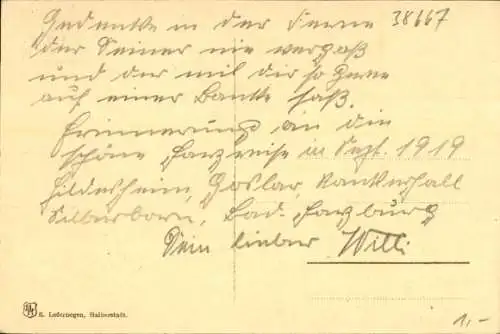 Gedenke in der Ferne 38667
der Deiner nie vergaß
und der mit dir so gerne
auf einer Bank saß.
Erinnerung an die
schöne Harzreise in Sept. 1919
Hildesheim, Goslar, Romkerhall
Silberborn, Bad. Harzburg
Dein lieber Willi
K. Lederbogen, Halberstadt.
1,-